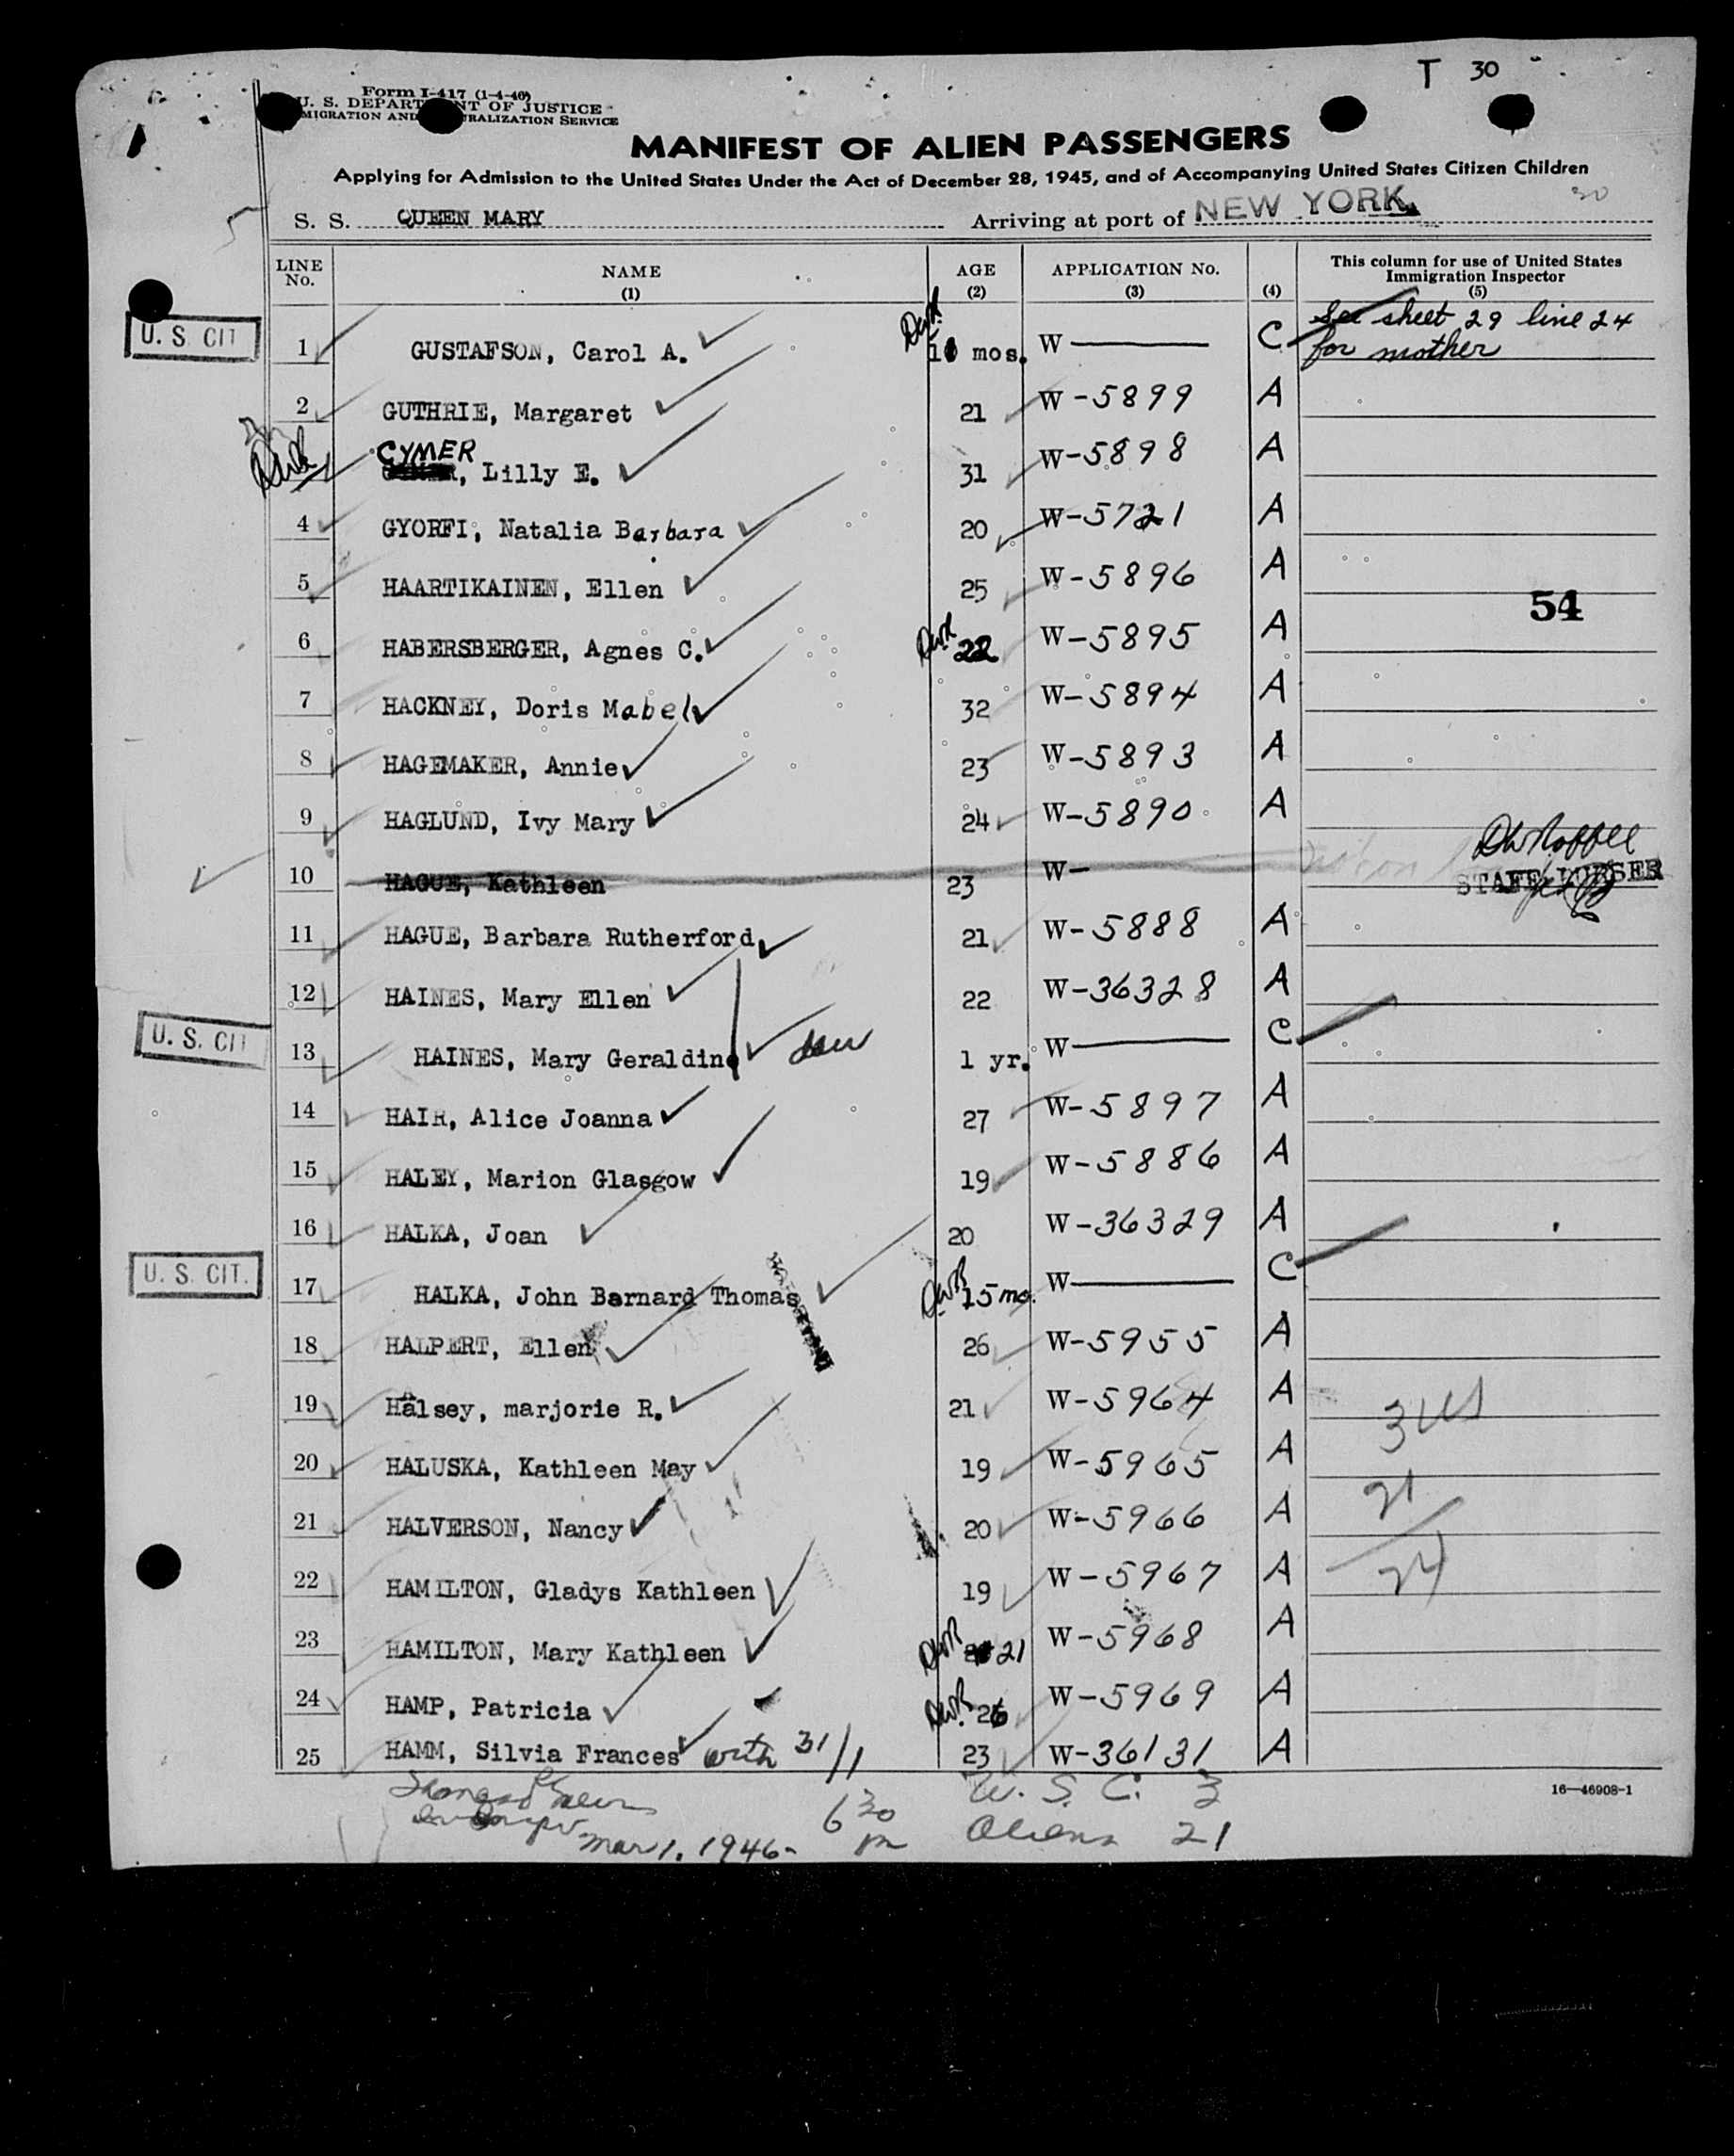 T 30
Form I-417 (1-4-46)
U. S. DEPARTMENT OF JUSTICE
IMMIGRATION AND NATURALIZATION SERVICE
MANIFEST OF ALIEN PASSENGERS
Applying for Admission to the United States Under the Act of December 28, 1945, and of Accompanying United States Citizen Children
S. S. QUEEN MARY Arriving at port of NEW YORK 30
LINE No. NAME (1) AGE (2) APPLICATION No. (3) (4) This column for use of United States Immigration Inspector (5)
U. S. CIT 1 GUSTAFSON, Carol A. mos. W— C See sheet 29 line 24 for mother
2 GUTHRIE, Margaret 21 W-5899 A
CYMER, Lilly E. 31 W-5898 A
4 GYORFI, Natalia Barbara 20 W-5721 A
5 HAARTIKAINEN, Ellen 25 W-5896 A
54
6 HABERSBERGER, Agnes C. DWR 22 W-5895 A
7 HACKNEY, Doris Mabel 32 W-5894 A
8 HAGEMAKER, Annie 23 W-5893 A
9 HAGLUND, Ivy Mary 24 W-5890 A
10 HAGUE, Kathleen 23 W-
11 HAGUE, Barbara Rutherford 21 W-5888 A
12 HAINES, Mary Ellen 22 W-36328 A
U. S. CIT 13 HAINES, Mary Geraldine 1 yr. W— C
14 HAIR, Alice Joanna 27 W-5897 A
15 HALEY, Marion Glasgow 19 W-5886 A
16 HALKA, Joan 20 W-36329 A
U. S. CIT. 17 HALKA, John Barnard Thomas DWR 15 mo. W— C
18 HALPERT, Ellen 26 W-5955 A
19 Halsey, marjorie R. 21 W-5964 A 3 US
20 HALUSKA, Kathleen May 19 W-5965 A 21
21 HALVERSON, Nancy 20 W-5966 A
22 HAMILTON, Gladys Kathleen 19 W-5967 A 24
23 HAMILTON, Mary Kathleen DWR 21 W-5968 A
24 HAMP, Patricia DWR 26 W-5969 A
25 HAMM, Silvia Frances with 31/1 23 W-36131 A
16—46908-1
U. S. C. 3
Mar 1, 1946- 6 30 Aliens 21